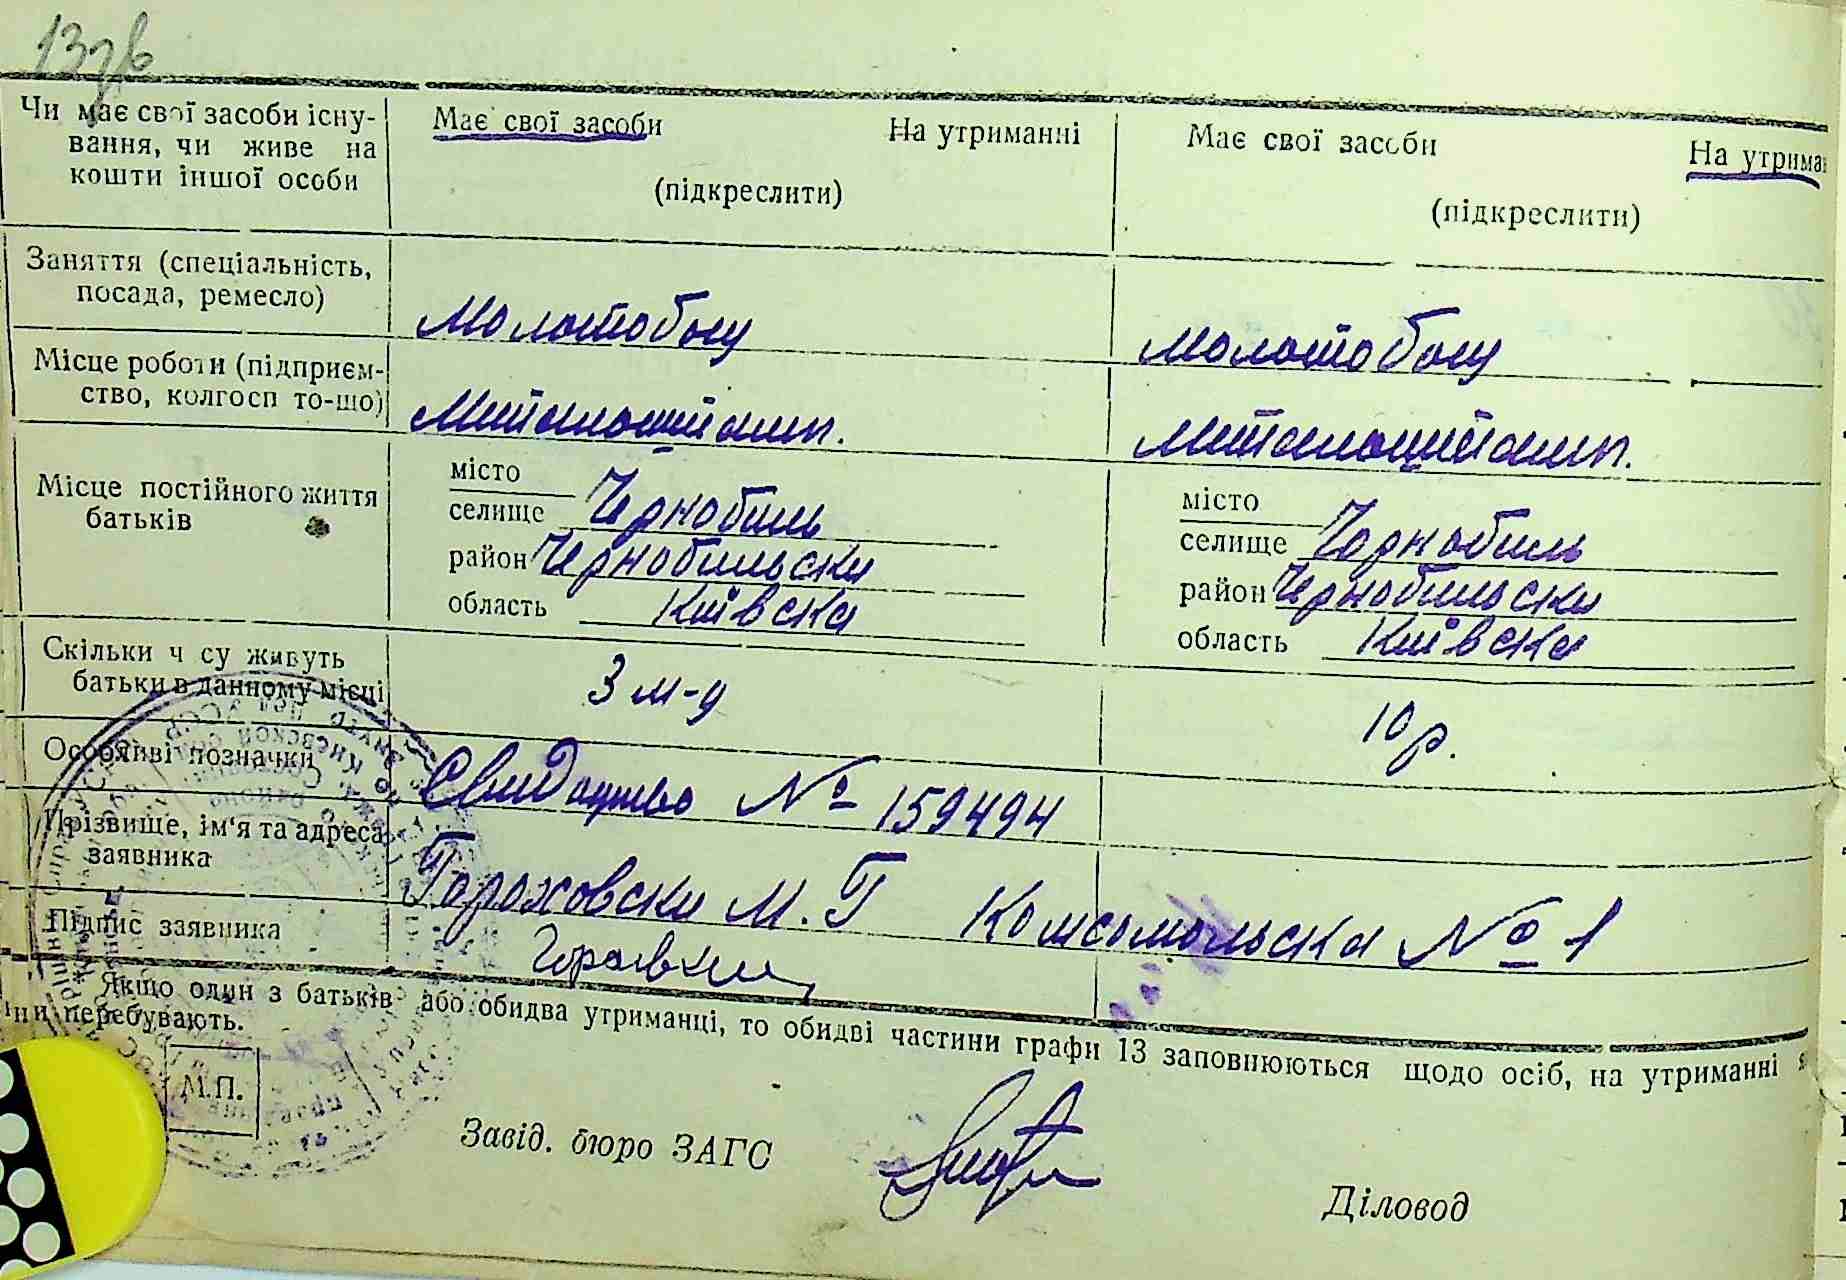 Чи має свої засоби існу-
вання, чи живе на
кошти іншої особи
Має свої засоби На утриманні
(підкреслити)
Має свої засоби На утрима
(підкреслити)
Заняття (спеціальність,
посада, ремесло)
Молотобоец
Молотобоец
Місце роботи (підприєм-
ство, колгосп то-що)
Місце постійного життя
батьків
місто
селище Чернобиль
район Чернобильски
область Київска
місто
селище Чорнобиль
район Чернобильски
область Київска
Скільки ч су живуть
батьки в данному місці
3 м-ц
10 р.
Особливі позначки
Свидоцтво № 159494
Прізвище, ім'я та адреса
заявника
Гороховски М. Г Комсомольска № 1
Підпис заявника
Якщо один з батьків або обидва утриманці, то обидві частини графи 13 заповнюються щодо осіб, на утриманні я
ни перебувають.
М.П.
Завід. бюро ЗАГС
Діловод